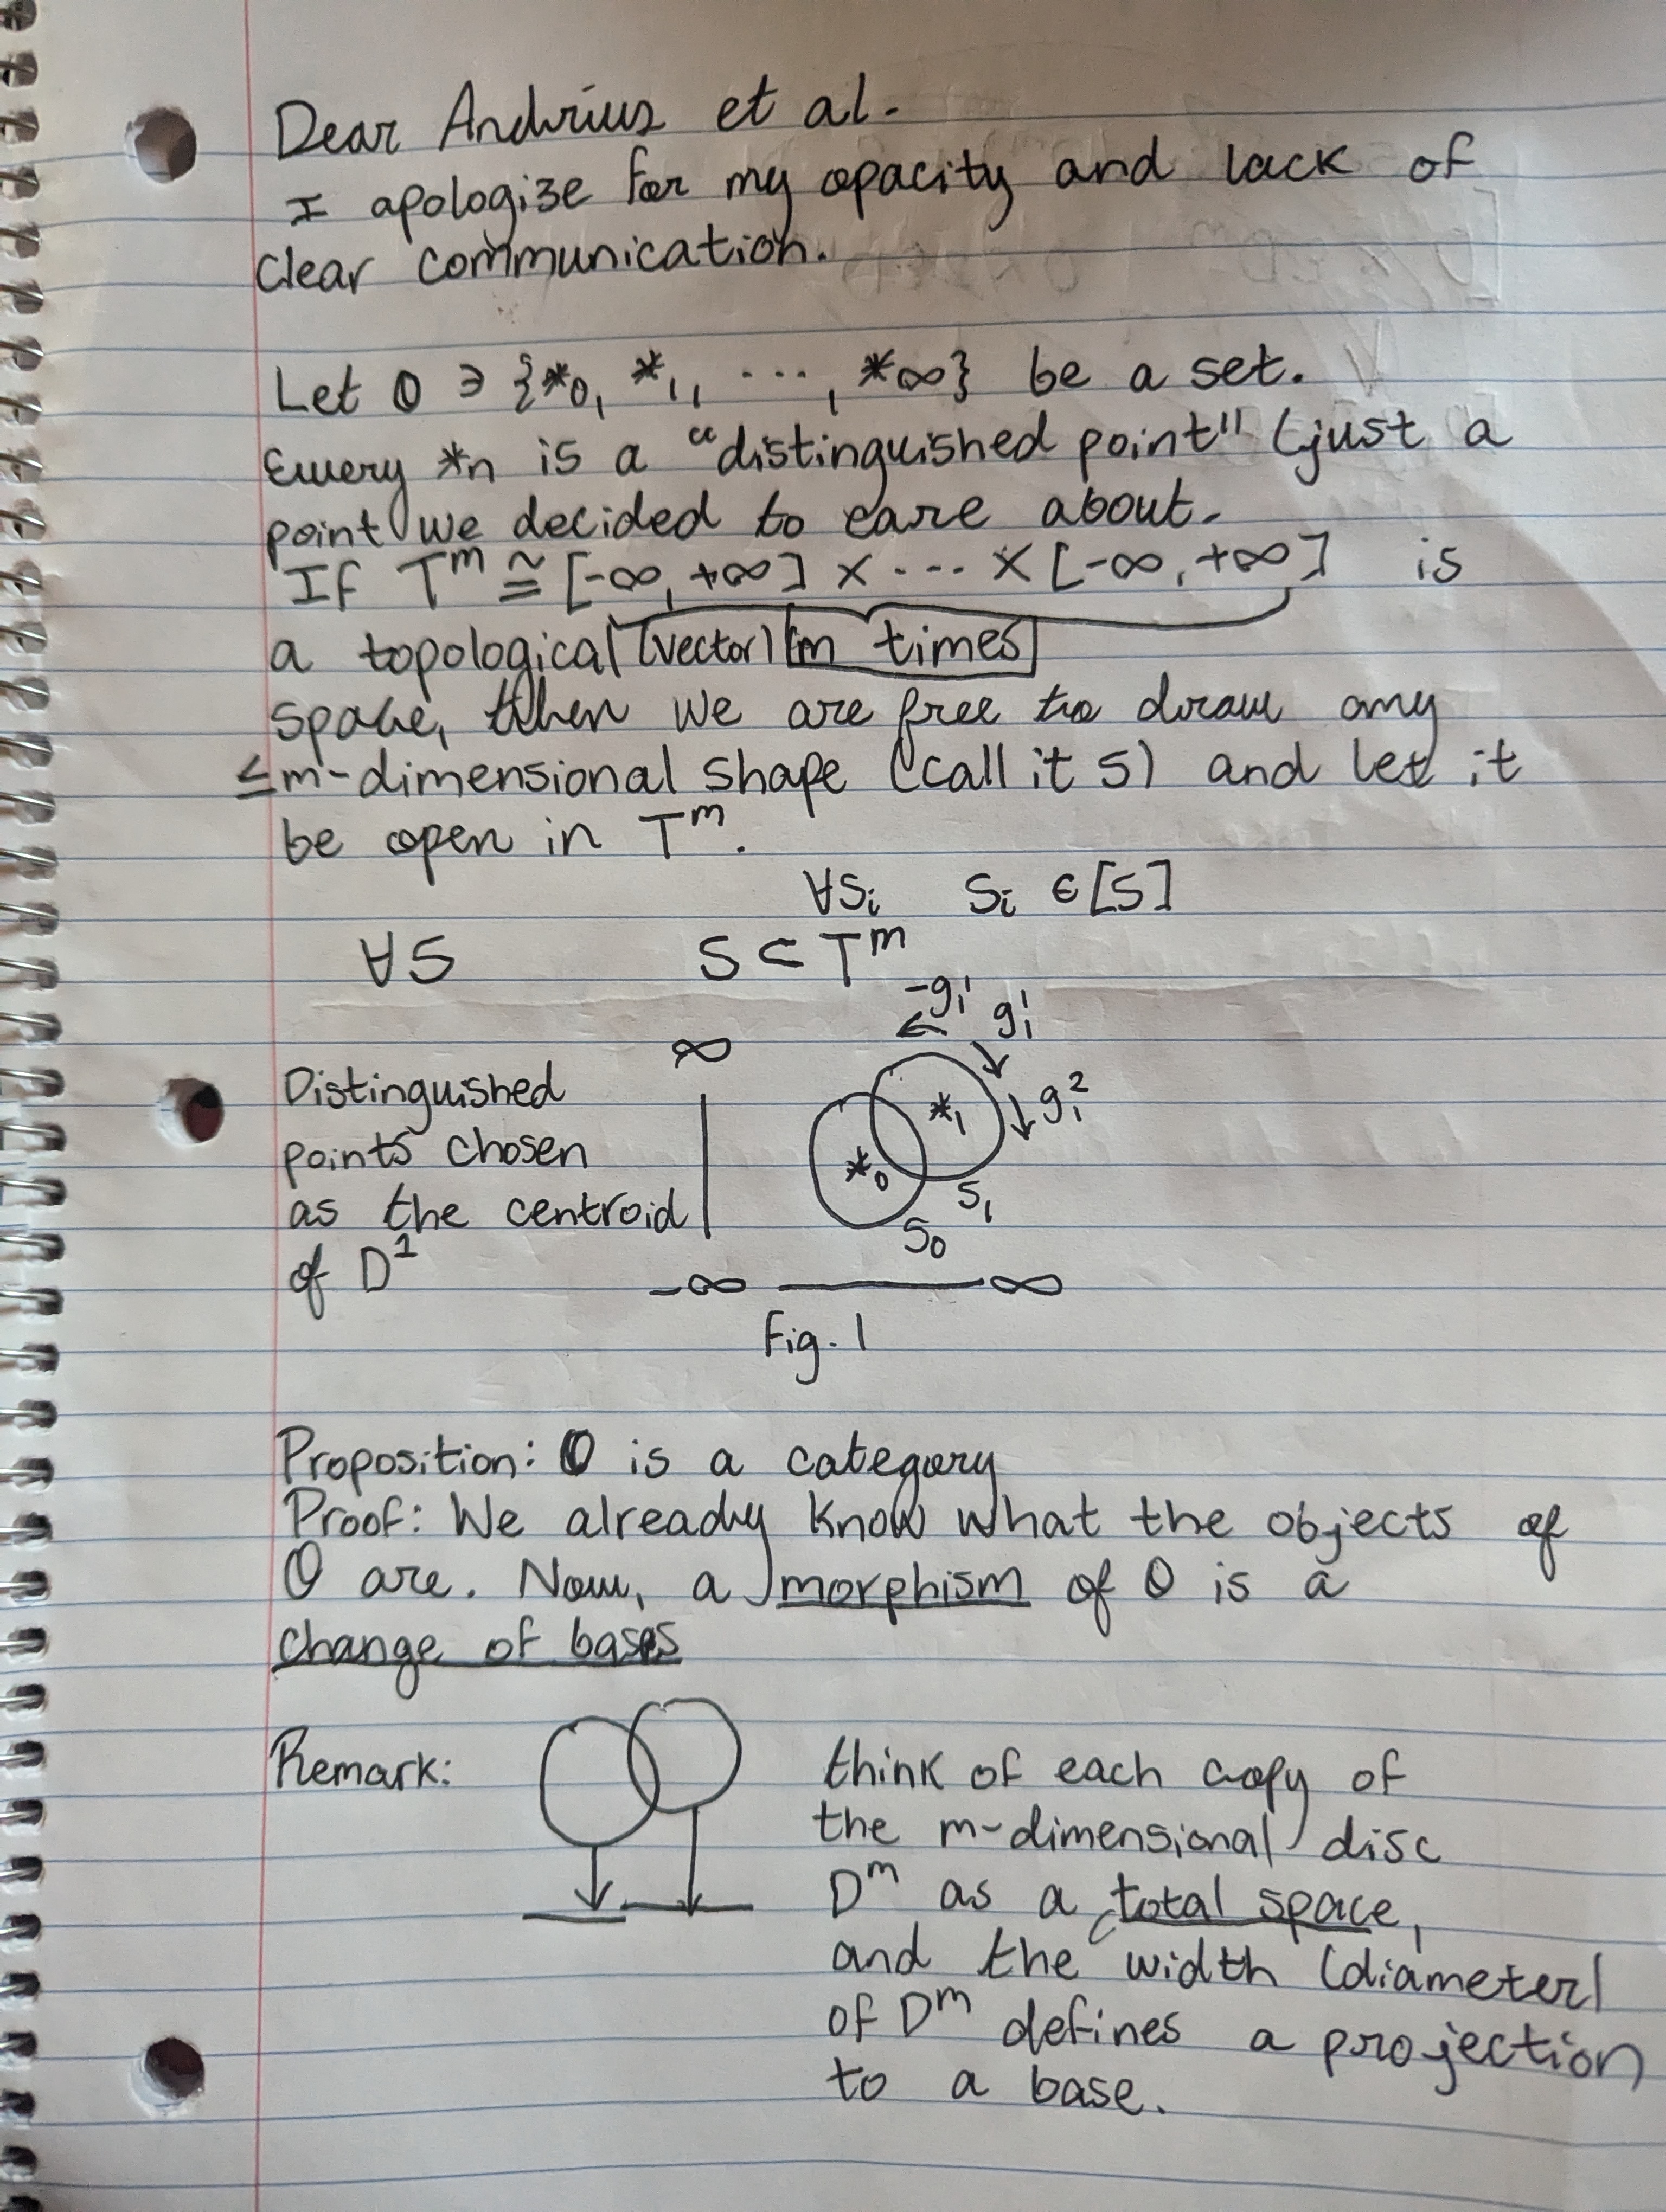 Dear Andrius et al.
I apologize for my opacity and lack of
clear communication.
Let O ∋ {*₀, *₁, ..., *∞} be a set.
Every *n is a "distinguished point" (just a
point we decided to care about.
If Tᵐ ≅ [-∞, +∞] × ... × [-∞, +∞] is
a topological (vector) m times
space, then we are free to draw any
≤m-dimensional shape (call it S) and let it
be open in Tᵐ.
∀Sᵢ Sᵢ ∈ [S]
∀S S ⊂ Tᵐ
-g₁¹
g₁¹
∞
Distinguished
points chosen
as the centroid
of D¹
*₁
g₁²
*₀
S₁
S₀
-∞ ∞
Fig. 1
Proposition: O is a category
Proof: We already know what the objects of
O are. Now, a morphism of O is a
change of bases
Remark:
think of each copy of
the m-dimensional disc
Dᵐ as a total space,
and the width (diameter)
of Dᵐ defines a projection
to a base.